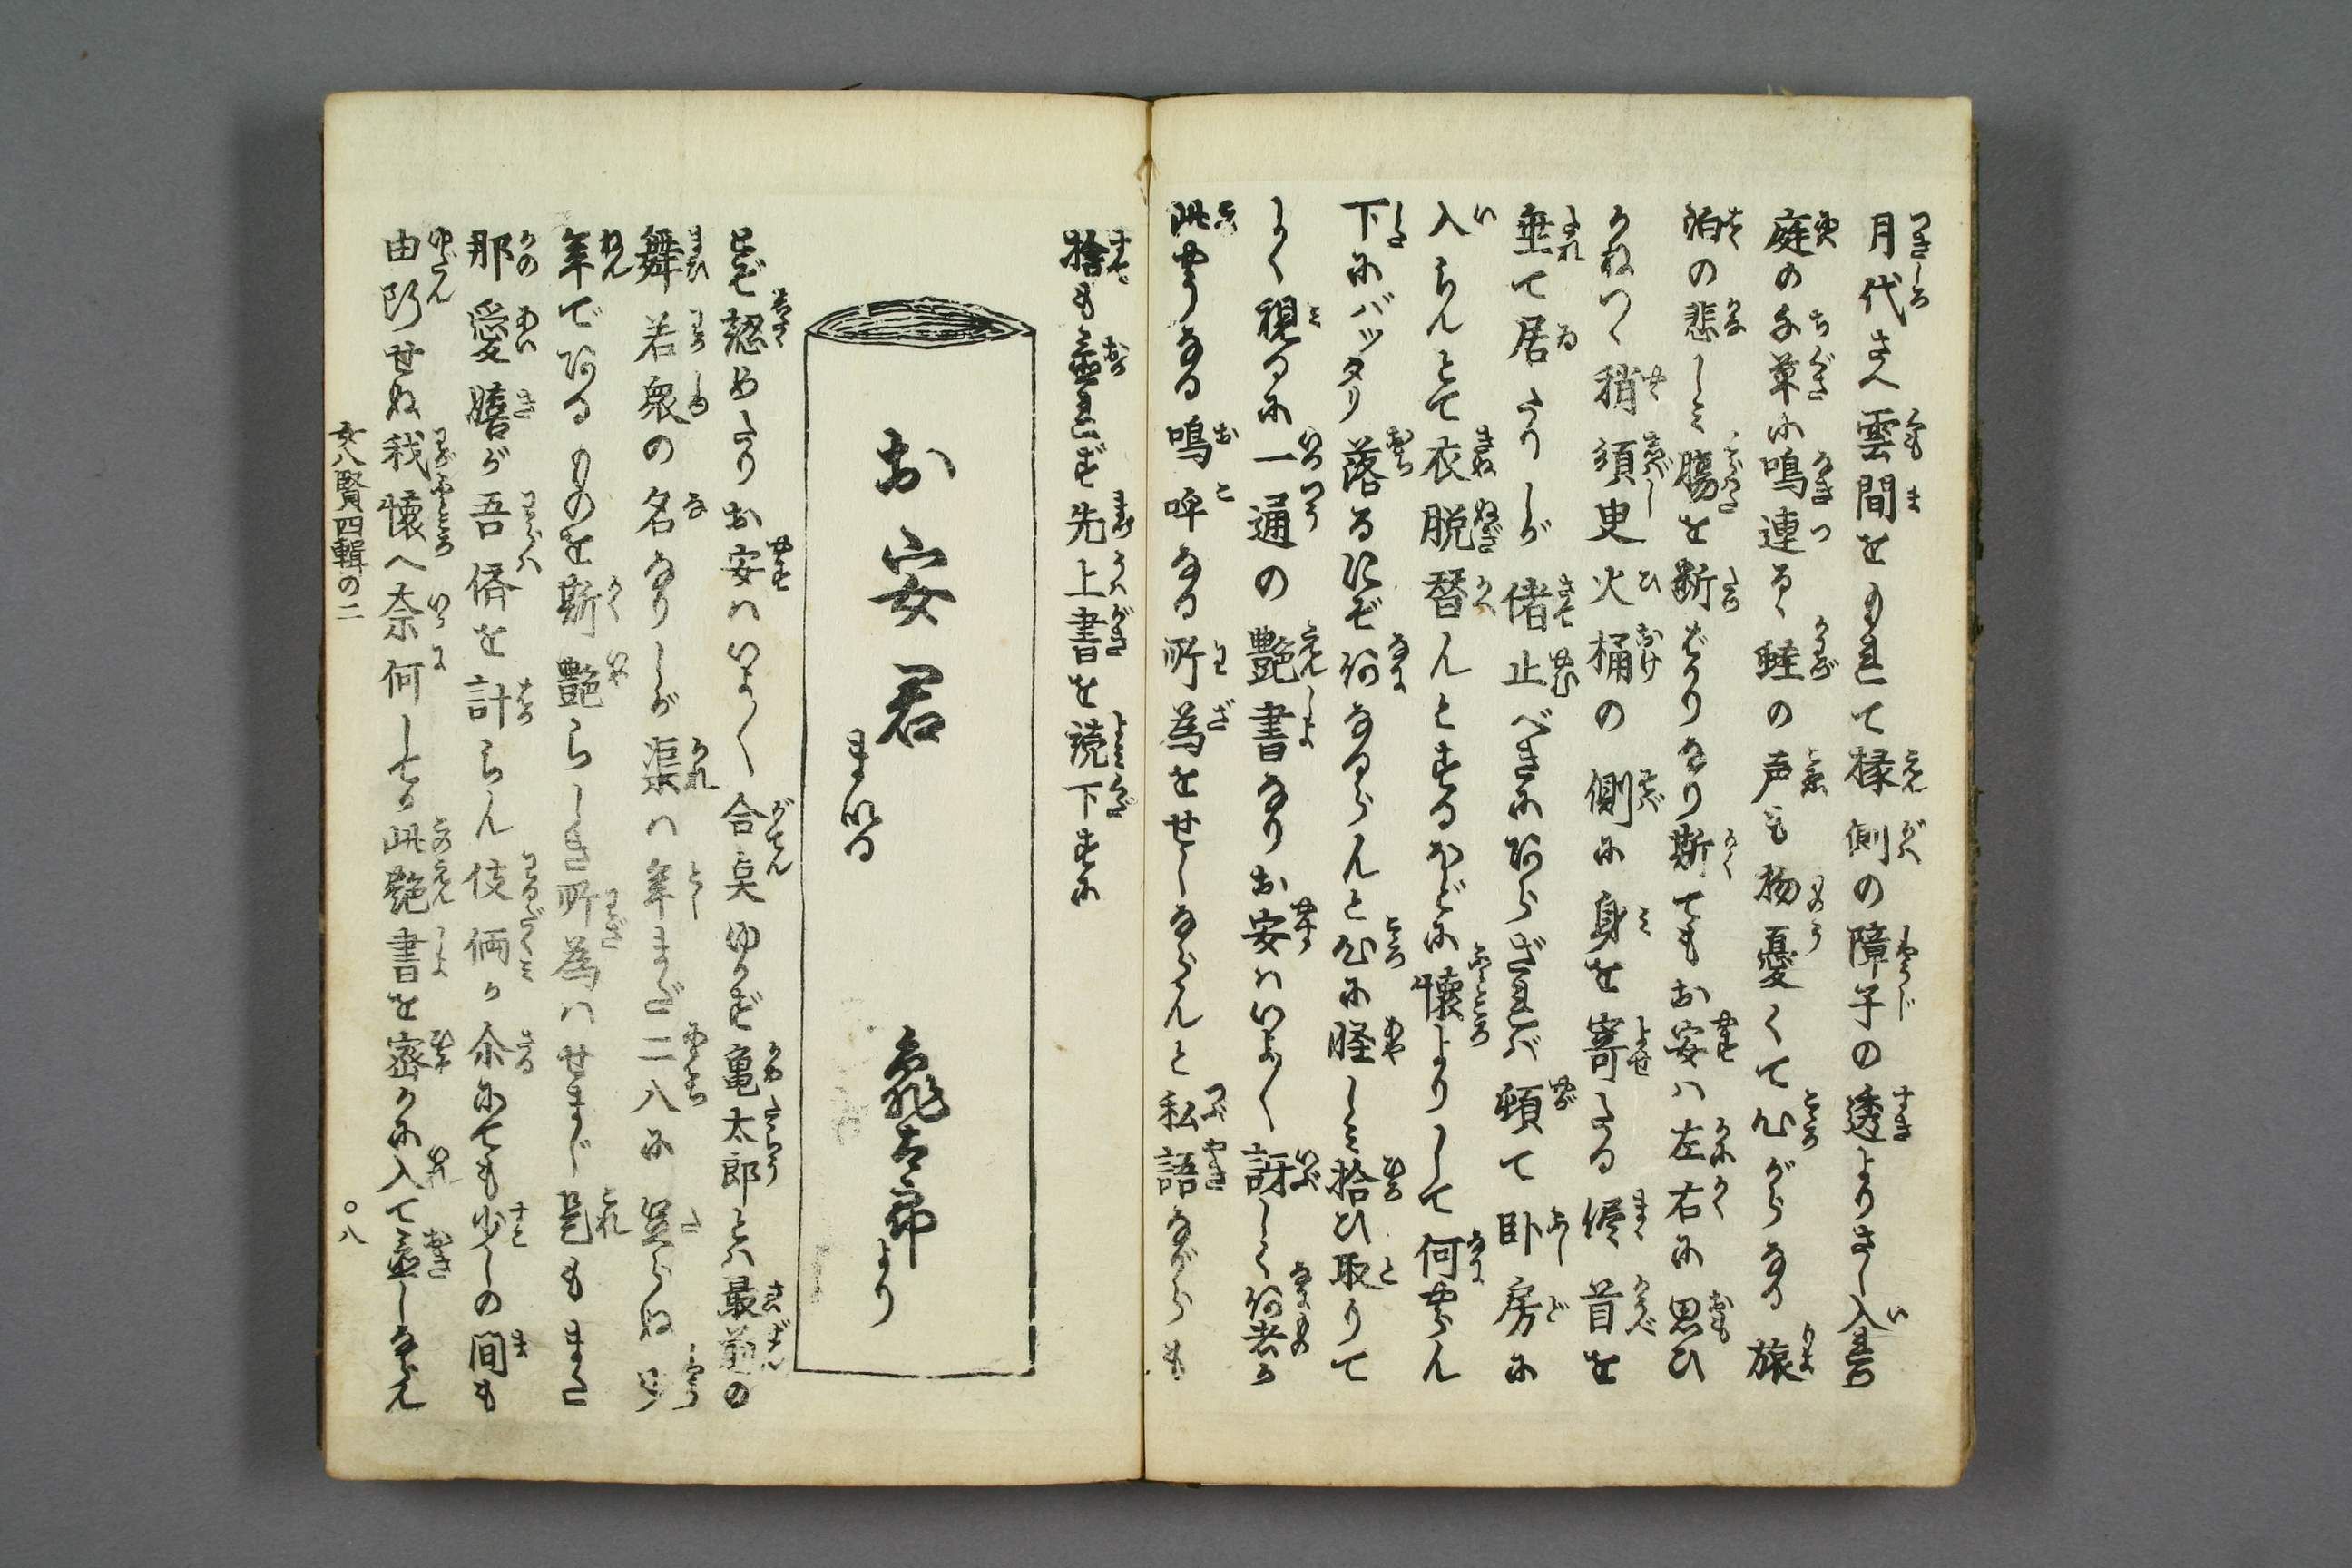 月代さへ雲間をもれて椽側の障子の透よりさし入る
庭の千草に鳴連る蛙の声も物憂くて心がらなる旅
泊の悲しみ腸を断ばかりなり斯てもお安ハ左右に思ひ
かねつゝ稍須臾火桶の側に身を寄たる儘首を
垂て居たりしが偖止べきにあらざれバ頓て卧房に
入らんとて衣脱替んとするほどに懐よりして何やらん
下にバツタリ落るにぞ何なるらんと心に怪しみ拾ひ取りて
よく視るに一通の艶書なりお安ハいよ〳〵訝しく何者か
此やうなる嗚呼なる所為をせしならんと私語ながらも
捨も置れず先上書を読下すに
お安君
まゐる
亀太郎より
とぞ認めたりお安ハいよ〳〵合点ゆかず亀太郎とハ最前の
舞若衆の名なりしが渠ハ年まだ二八に足らぬ少
年であるものを斯艶らしき所為ハせまじ是もまた
那愛嬉が吾儕を計らん伎倆か余にても少しの間も
由断せぬ我懐へ奈何してか此艶書を密かに入て置しならん
女八賢四輯の二
〇八